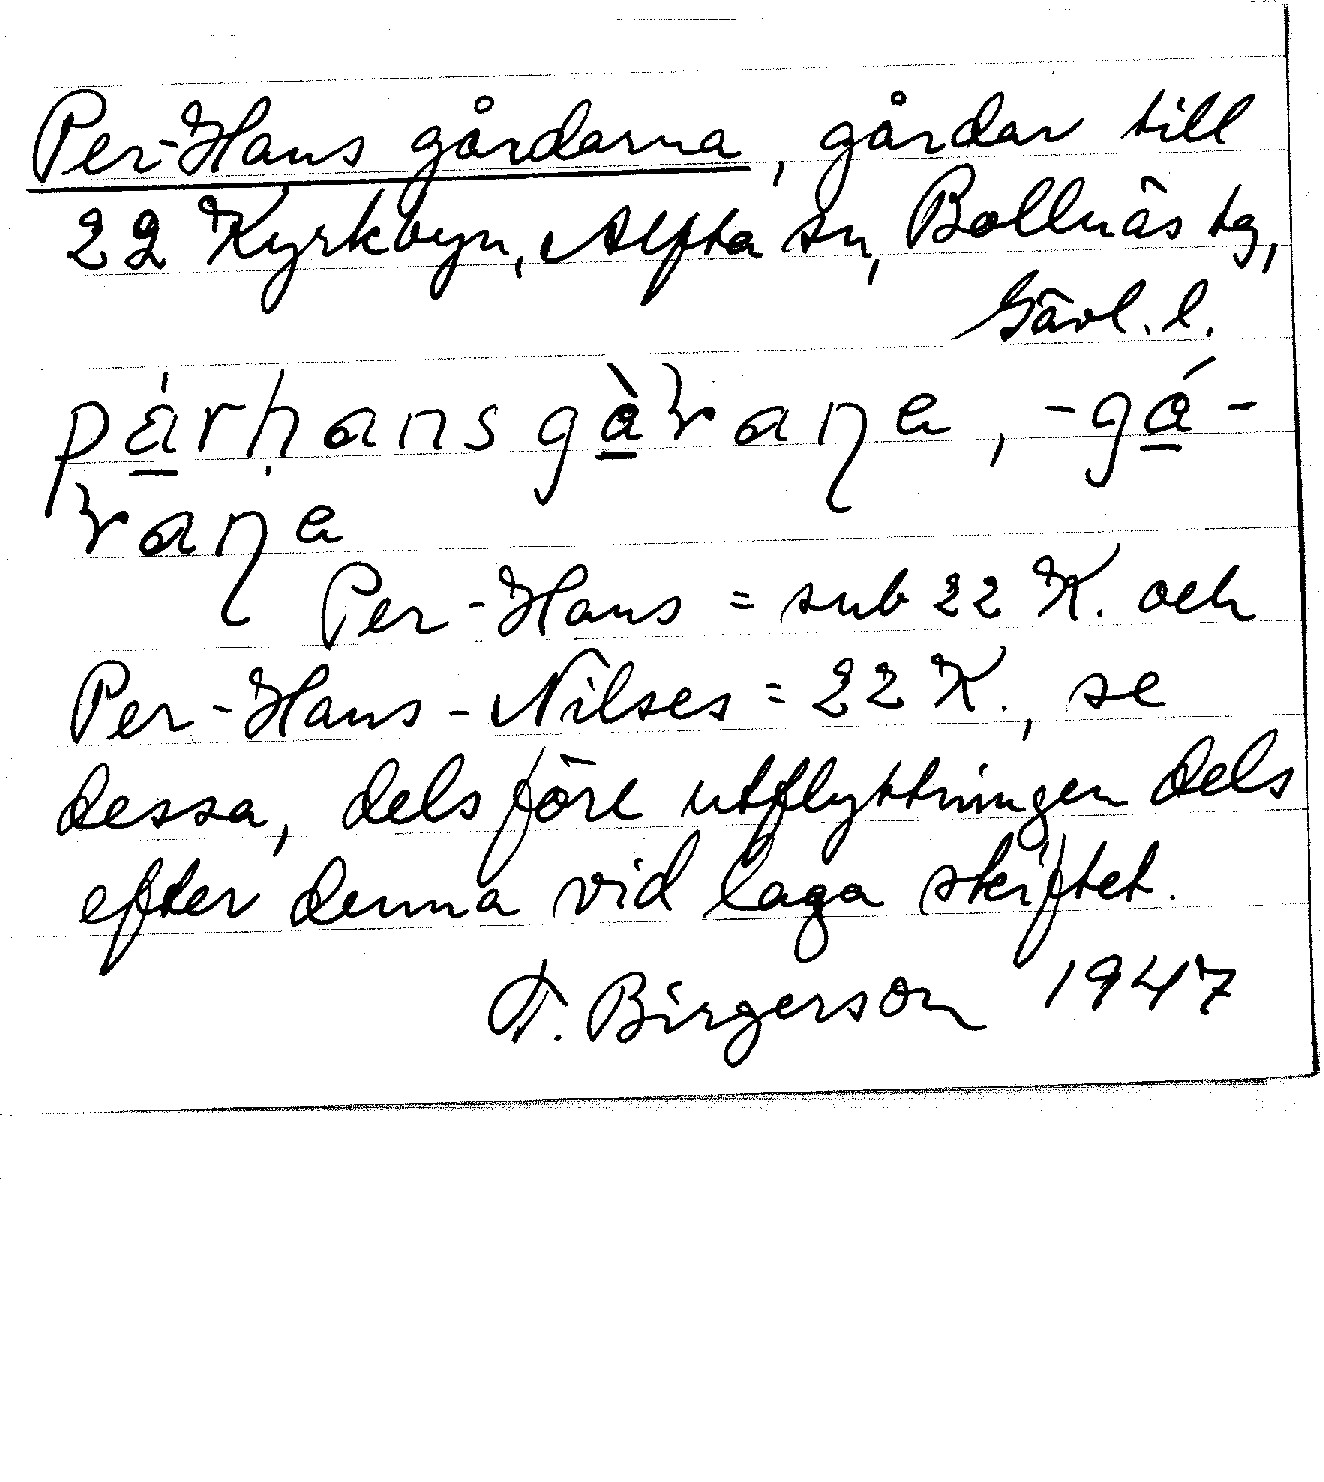 Per-Hans gårdarna, gårdar till
22 Kyrkbyn, Alfta sn, Bollnäs tg,
Gävl. l.
pá̱rḥansgà̱ꝛaŋa, -gá̱-
ꝛaŋa
Per-Hans = sub 22 K. och
Per-Hans-Nilses = 22 K., se
dessa, dels före utflyttningen dels
efter denna vid laga skiftet.
F. Birgerson 1947